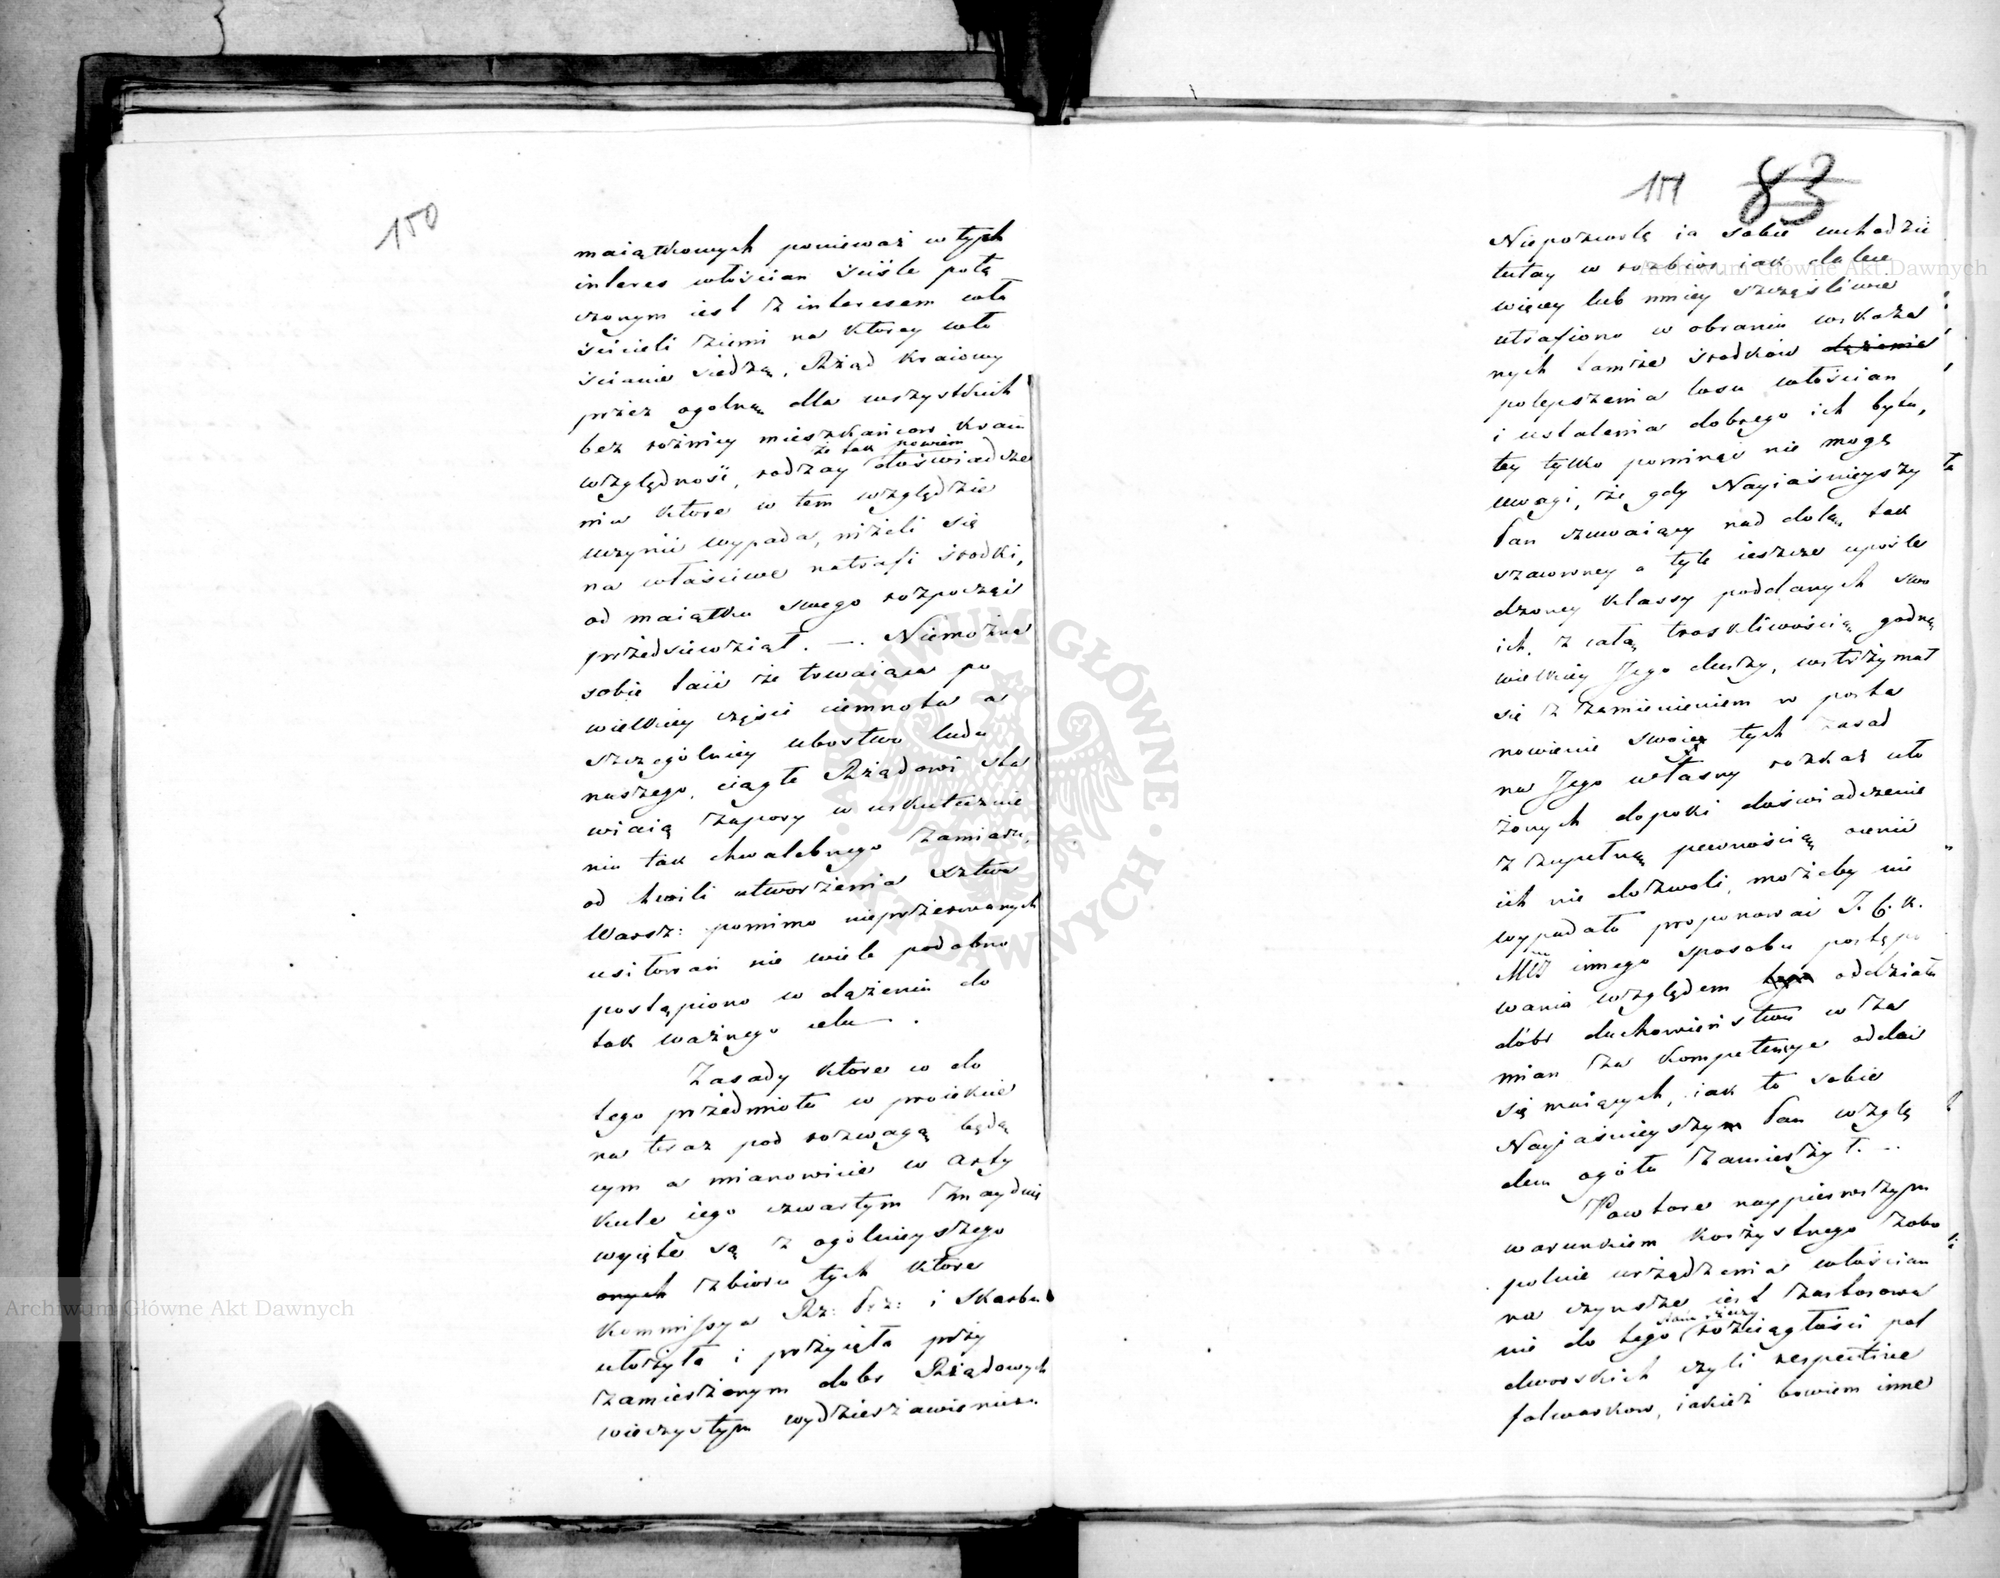 150
maiątkowych ponieważ w tych
interes włościan ściśle połą
czonym iest z interesem wła
ścicieli ziemi na ktorey wło
ścianie siedzą, Rząd Kraiowy
przez ogolną dla wszystkich
bez rożnicy mieszkańcow Kraiu
że tak powiem
względność, rodzay doświadcze
nia ktore w tem względzie
uczynić wypada, niżeli się
na właściwe natrafi środki,
od maiątku swego rozpocząć
przedsiewziął. — Niemożna
sobie taić że trwaiąca po
wielkiey części ciemnota a
szczegolniey ubostwo ludu
naszego, ciągłe Rządowi sta
wiaią zapory w uskutecznie
niu tak chwalebnego zamiaru,
od chwili utworzenia Xztwa
Warsz: pomimo nieprzerwanych
usiłowań nie wiele podobno
postąpiono w dążeniu do
tak ważnego celu.
Zasady ktore w do
tego przedmiotu w proiekcie
na teraz pod rozwagą będą
cym a mianowicie w Arty
kule iego czwartym znayduią
wyięte są z ogólnieyszego
onych zbioru tych ktore
Kommissya Rz: Prz: i Skarbu
ułożyła i przyięła przy
zamierzonym dobr Rządowych
wieczystym wydzierzawieniu.
151 83
Niepozwolę ia sobie wchodzić
tutay w rozbior iak dalece
więcey lub mniey szczęśliwie
utrafiono w obraniu wskaza
nych tamże środków dążenia
polepszenia losu włościan
i ustalenia dobrego ich bytu,
tey tylko pominąć nie mogę
uwagi, że gdy Nayiaśnieyszy
Pan czuwaiący nad dolą tak
szacowney a tyle ieszcze upośle
dzoney klassy poddanych swo
ich, z całą troskliwością godną
wielkiey Jego duszy, wstrzymał
się z zamienieniem w posta
nowienie swoie tych zasad
na Jego własny rozkaz uło
żonych dopoki doświadczenie
z zupełną pewnością ocenić
ich nie dozwoli, możeby nie
wypadało proponować J. C. K.
Mći innego sposobu postępo
wania względem tego oddziału
dóbr duchowieństwu w za
mian za kompetencye oddać
się maiących, iak to sobie
Nayiaśnieyszy Pan wzglę
dem ogółu zamierzył. —
Powtore naypierwszym
warunkiem korzystnego zobo
polnie urządzenia włościan
na czynsze iest zastosowa
nie do tego rozciągłości pol
dworskich czyli respective
folwarkow, iakież bowiem inne
Archiwum Główne Akt Dawnych
Archiwum Główne Akt Dawnych
ARCHIWUM GŁÓWNE AKT DAWNYCH